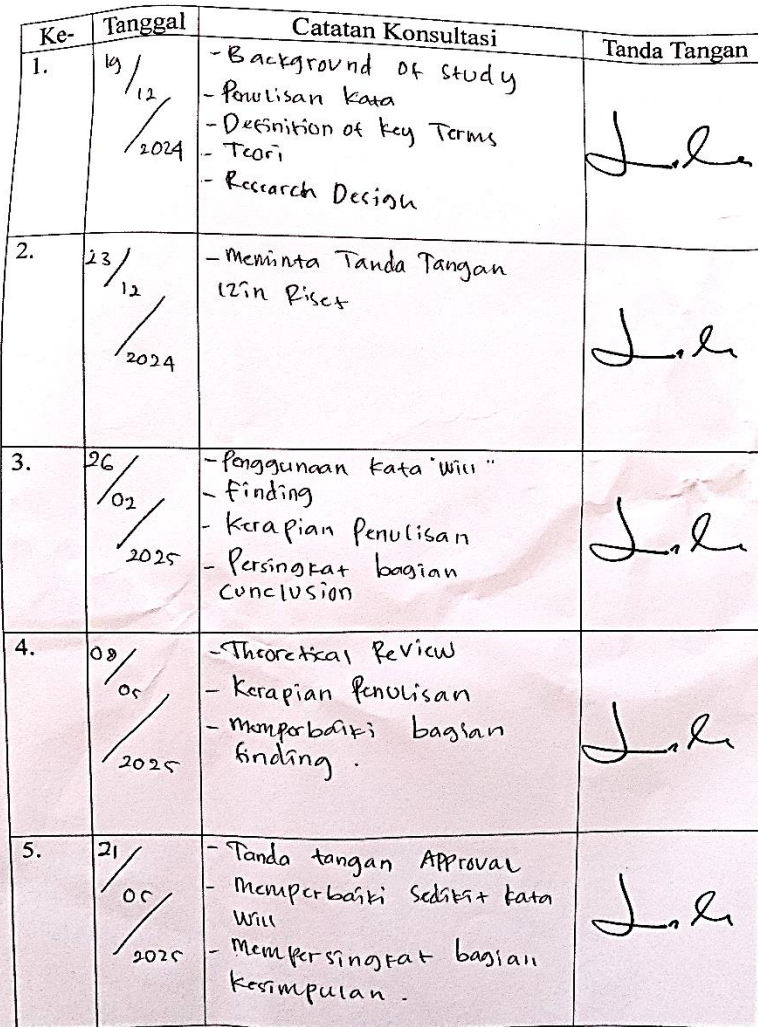 Ke- Tanggal Catatan Konsultasi Tanda Tangan
1. 19/12/2024
- Background of study
- Penulisan kata
- Definition of key Terms
- Teori
- Research Design
2. 23/12/2024
- Meminta Tanda Tangan
izin Riset
3. 26/02/2025
- Penggunaan kata "will"
- Finding
- Kerapian Penulisan
- Persingkat bagian
conclusion
4. 08/05/2025
- Theoretical Review
- Kerapian Penulisan
- Memperbaiki bagian
finding .
5. 21/05/2025
- Tanda tangan Approval
- Memperbaiki sedikit kata
will
- Mempersingkat bagian
kesimpulan .